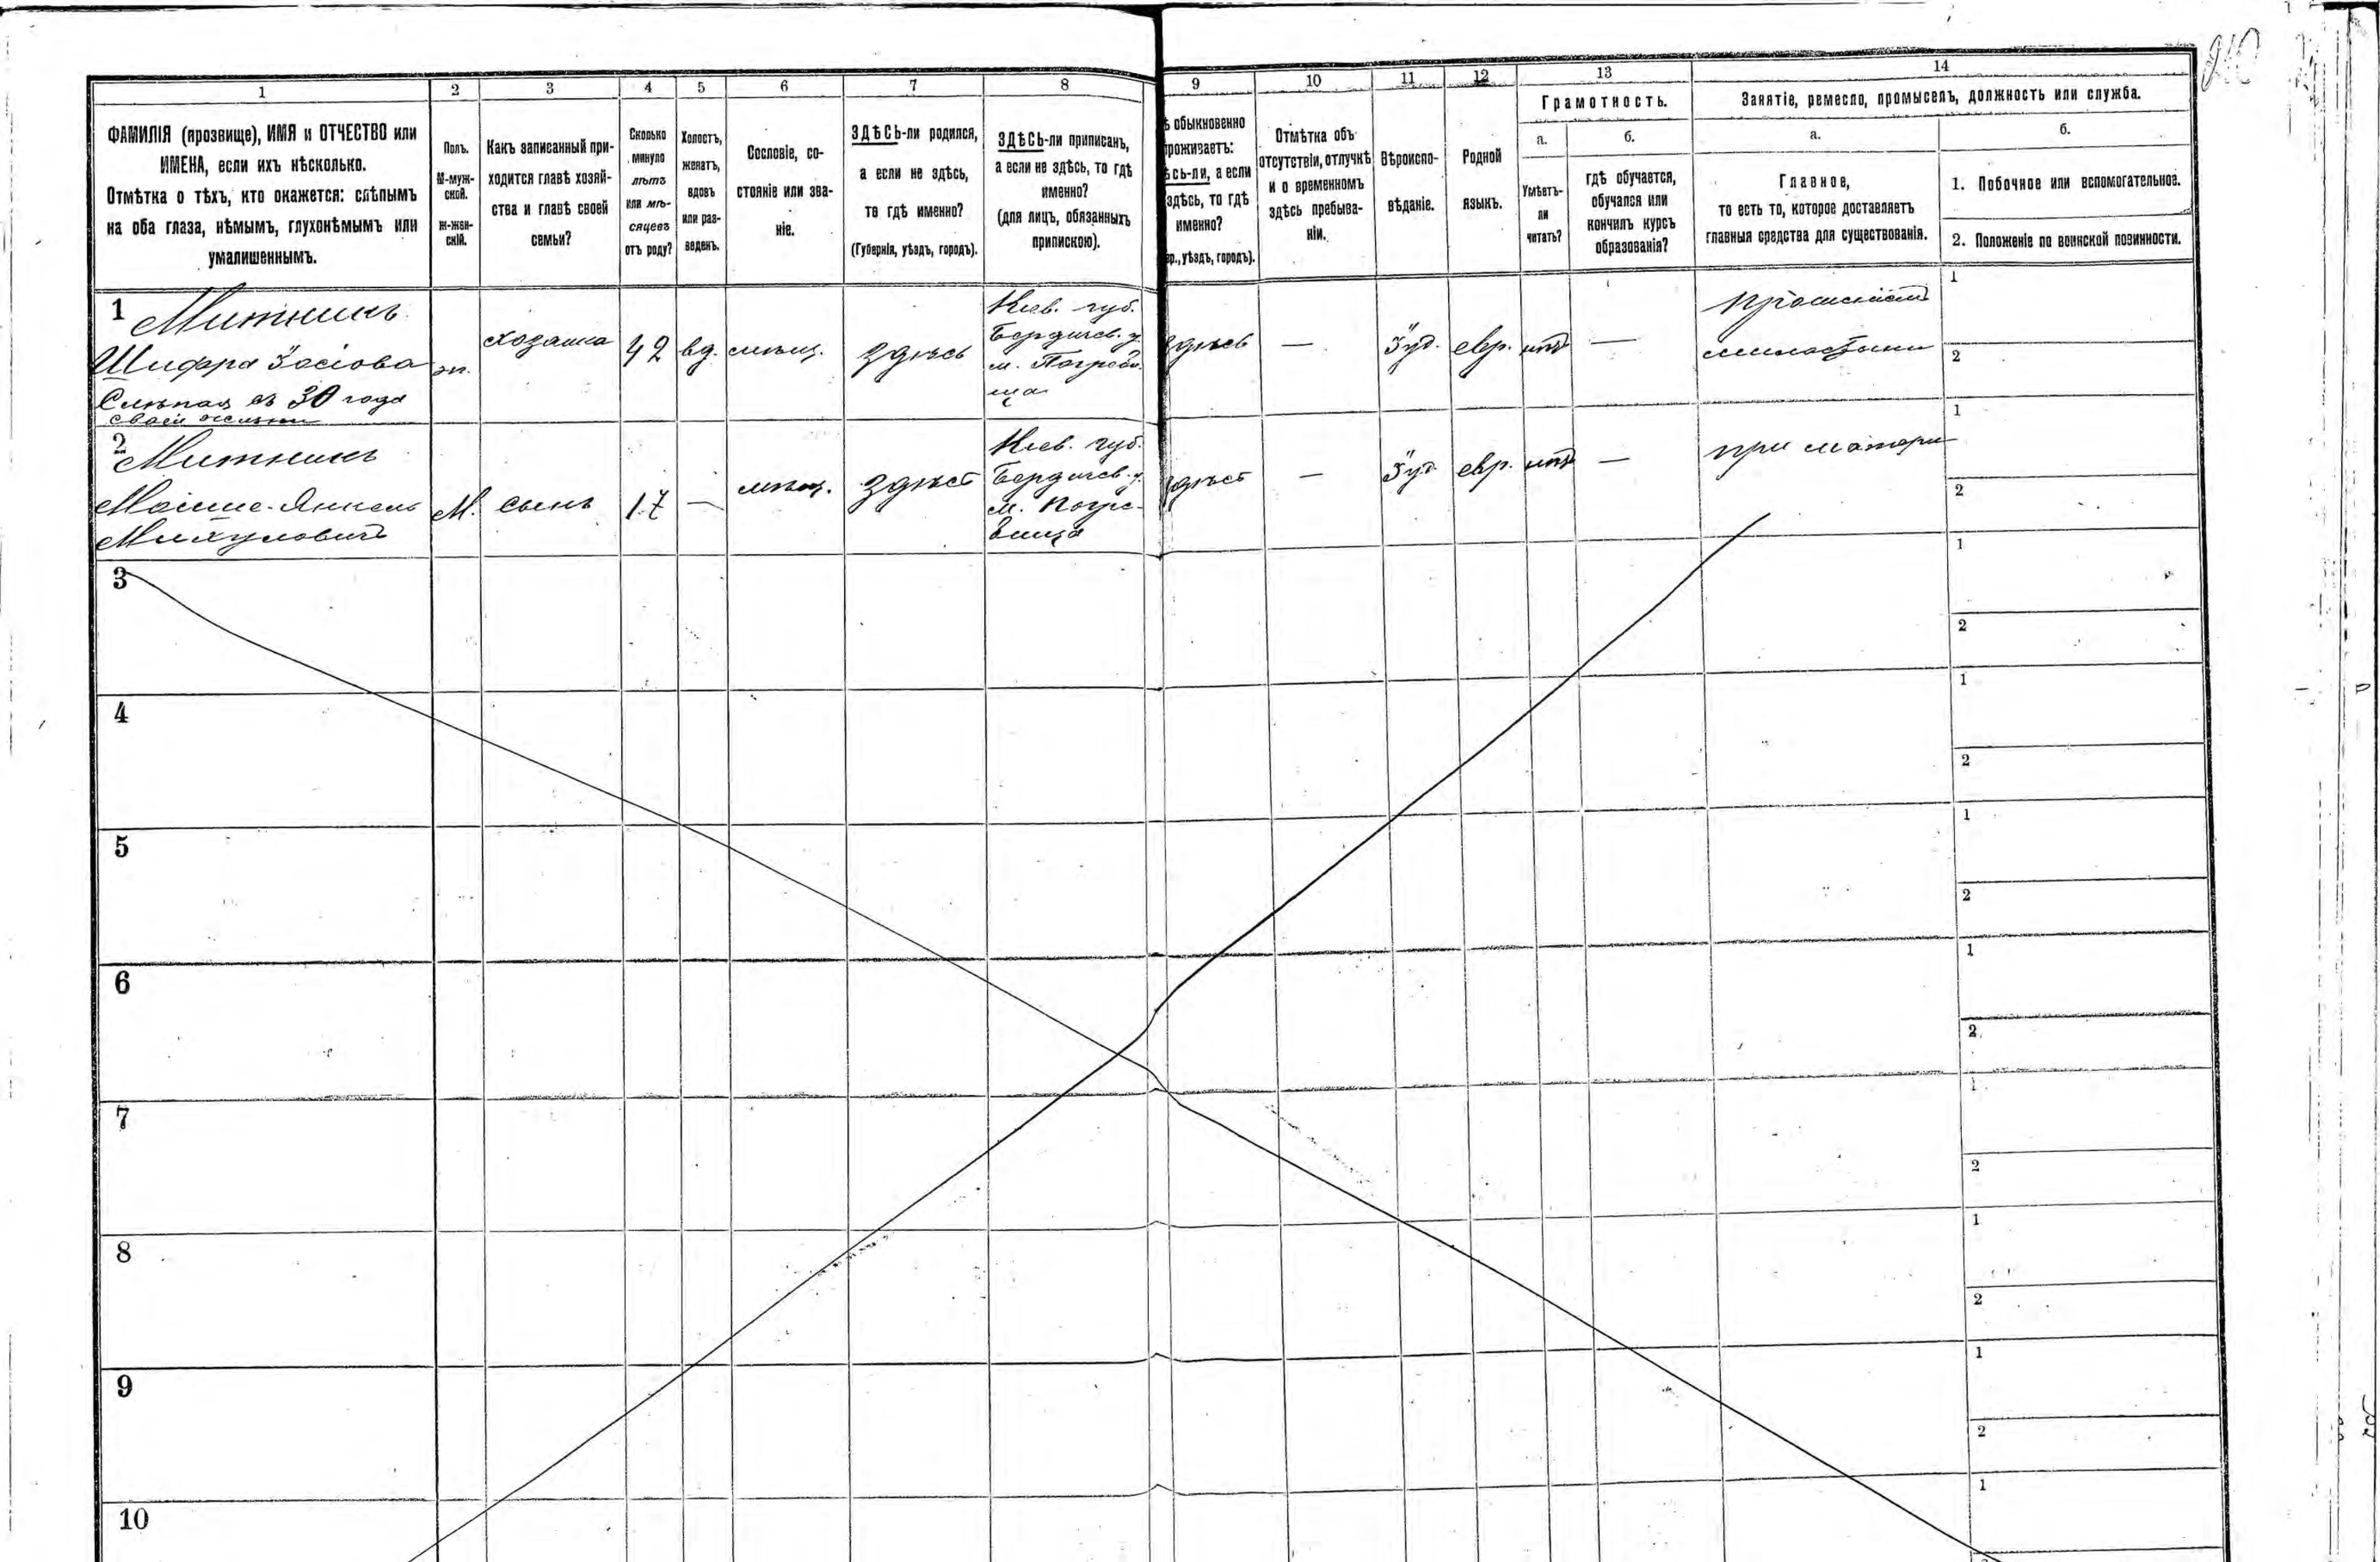 210
1
2
3
4
5
6
7
8
9
10
11
12
13
14
ФАМИЛІЯ (прозвище), ИМЯ и ОТЧЕСТВО или
ИМЕНА, если ихъ нѣсколько.
Отмѣтка о тѣхъ, кто окажется: слѣпымъ
на оба глаза, нѣмымъ, глухонѣмымъ или
умалишеннымъ.
Полъ.
М-муж-
ской.
ж-жен-
скій.
Какъ записанный при-
ходится главѣ хозяй-
ства и главѣ своей
семьи?
Сколько
минуло
лѣтъ
или мѣ-
сяцевъ
отъ роду?
Холостъ,
женатъ,
вдовъ
или раз-
веденъ.
Сословіе, со-
стояніе или зва-
ніе.
ЗДѢСЬ-ли родился,
а если не здѣсь,
то гдѣ именно?
(Губернія, уѣздъ, городъ).
ЗДѢСЬ-ли приписан,
а если не здѣсь, то гдѣ
именно?
(для лицъ, обязанныхъ
припискою).
обыкновенно
проживаетъ:
а если
здѣсь, то гдѣ
именно?
уѣздъ, городъ).
Отмѣтка объ
отсутствіи, отлучкѣ
и о временномъ
здѣсь пребыва-
ніи.
Вѣроиспо-
вѣданіе.
Родной
языкъ.
Грамотность.
а.
Умѣетъ-
ли
читать?
б.
гдѣ обучается,
обучался или
кончилъ курсъ
образованія?
Занятіе, ремесло, промыселъ, должность или служба.
а.
Главное,
то есть то, которое доставляетъ
главныя средства для существованія.
б.
1. Побочное или вспомогательное.
2. Положеніе по воинской повинности.
1 Митникъ
Шифра Іосіова
Слѣпая съ 30 года
своей жизни
ж.
хозяйка
42
вд.
мѣщ.
здѣсь
Кіев. губ.
Бердичев. у.
м. Погреби
ща
здѣсь
—
Іуд.
евр.
нѣтъ
—
милостыни
1
2
2 Митникъ
Мошко-Янкель
М.
сынъ
17
—
мѣщ.
здѣсь
Кіев. губ.
Бердичев. у.
м. Погре-
бища
здѣсь
—
Іуд.
евр.
нѣтъ
—
при матери
1
2
3
1
2
4
1
2
5
1
2
6
1
2
7
1
2
8
1
2
9
1
2
10
1